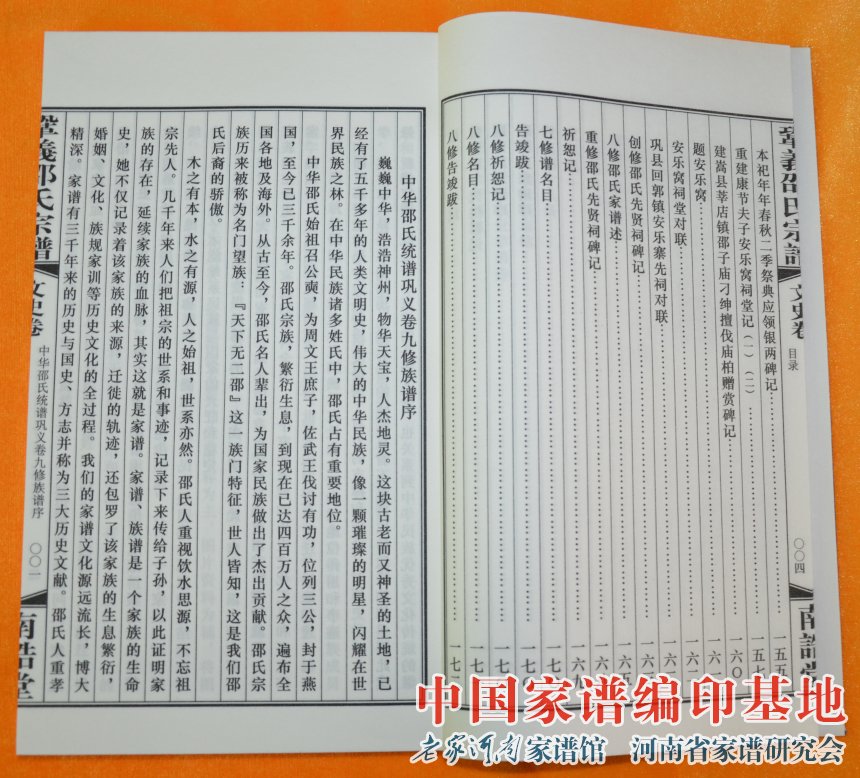 鞏義邵氏宗譜
文史卷
目录
〇〇四
本祀年年春秋二季祭典应领银两碑记
重建康节夫子安乐窝祠堂记（一）（二）
建嵩县莘店镇邵子庙刁绅擅伐庙柏赠赏碑记
题安乐窝
安乐窝祠堂对联
巩县回郭镇安乐寨先祠对联
创修邵氏先贤祠碑记
八修邵氏家谱述
重修邵氏先贤祠碑记
祈恕记
七修谱名目
告竣跋
八修祈恕记
八修名目
八修告竣跋
中华邵氏统谱巩义卷九修族谱序
巍巍中华，浩浩神州，物华天宝，人杰地灵。这块古老而又神圣的土地，已
经有了五千多年的人类文明史，伟大的中华民族，像一颗璀璨的明星，闪耀在世
界民族之林。在中华民族诸多姓氏中，邵氏占有重要地位。
中华邵氏始祖召公奭，为周文王庶子，佐武王伐讨有功，位列三公，封于燕
国，至今已三千余年。邵氏宗族，繁衍生息，到现在已达四百万人之众，遍布全
国各地及海外。从古至今，邵氏名人辈出，为国家民族做出了杰出贡献。邵氏宗
族历来被称为名门望族：『天下无二邵』这一族门特征，世人皆知，这是我们邵
氏后裔的骄傲。
木之有本，水之有源，人之始祖，世系亦然。邵氏人重视饮水思源，不忘祖
宗先人。几千年来人们把祖宗的世系和事迹，记录下来传给子孙，以此证明家
族的存在，延续家族的血脉，其实这就是家谱。家谱、族谱是一个家族的生命
史，她不仅记录着该家族的来源，迁徙的轨迹，还包罗了该家族的生息繁衍，
婚姻、文化、族规家训等历史文化的全过程。我们的家谱文化源远流长，博大
精深。家谱有三千年来的历史与国史、方志并称为三大历史文献。邵氏人重孝
鞏義邵氏宗譜
文史卷
中华邵氏统谱巩义卷九修族谱序
〇〇一
中国家谱编印基地
老家河南家谱馆 河南省家谱研究会